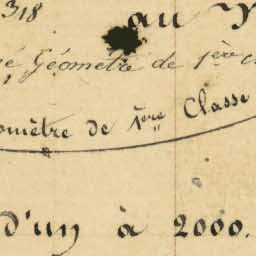 318
au
Géometre de 1ère
omètre de 1ère Classe
d'un à 2000.